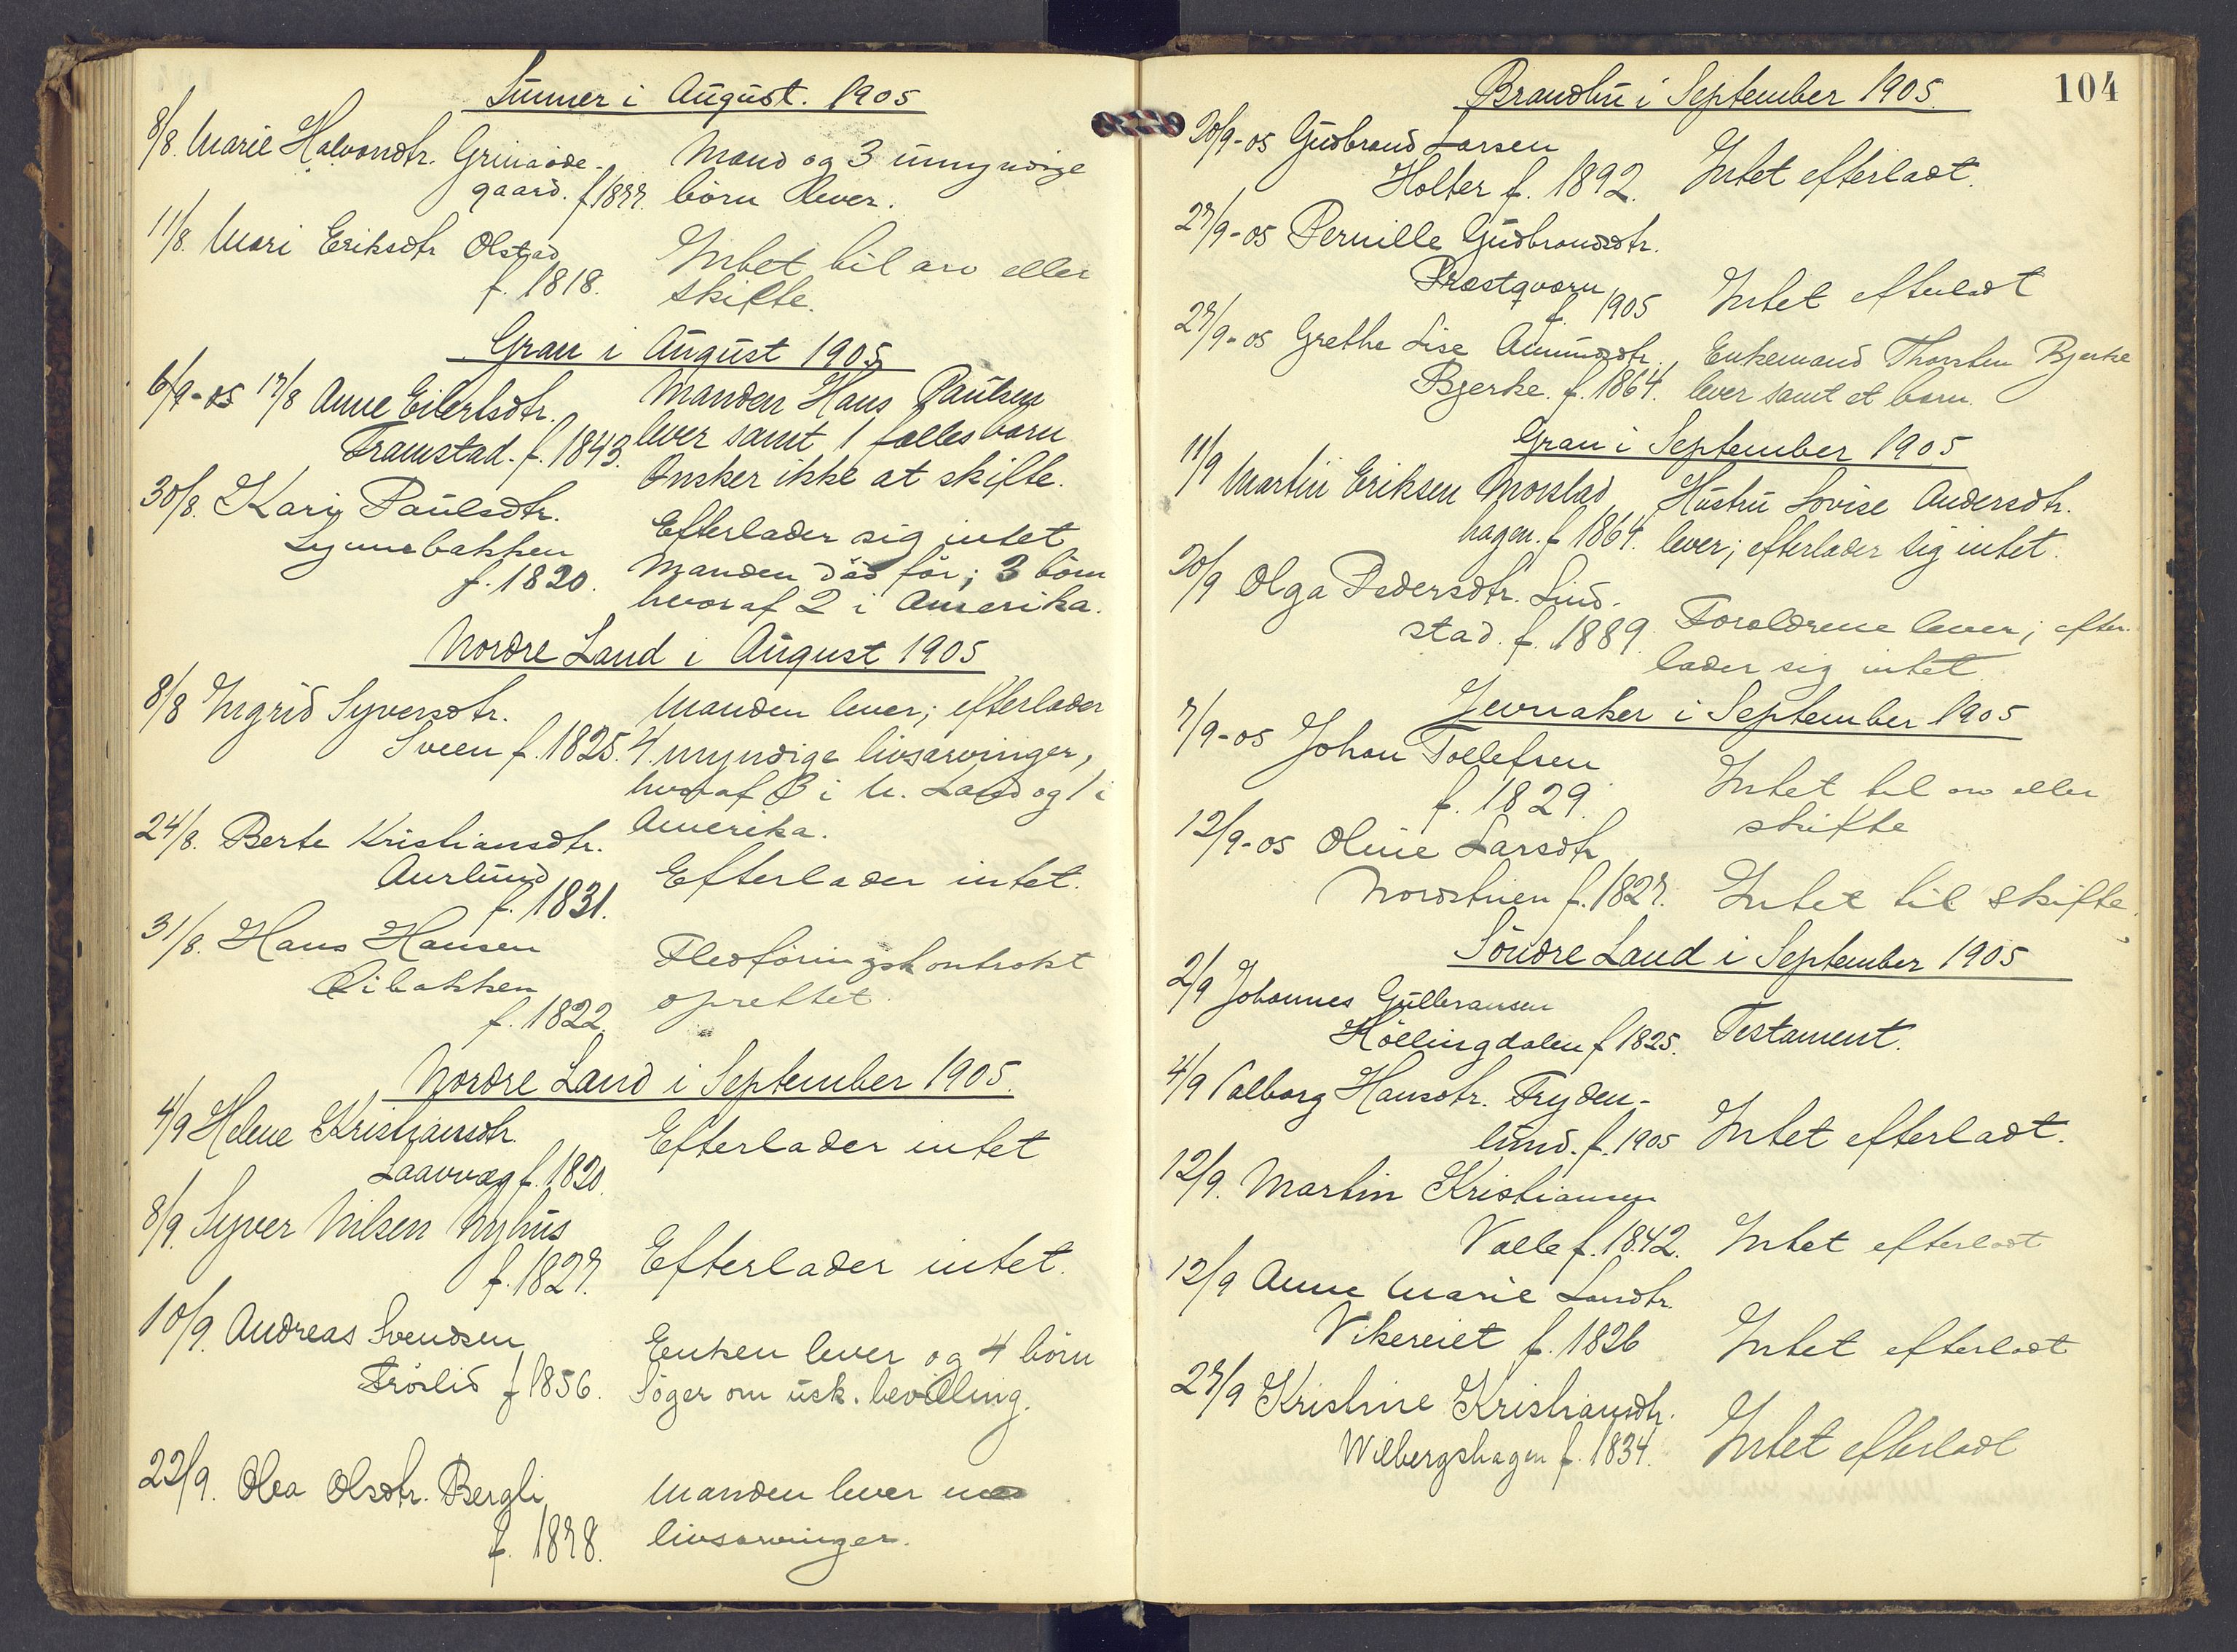 Lunner i August. 1905
8/8. Marie Halvorsdtr. Grinaøde-
gaard. f 1877.
Mand og 3 umyndige
børn lever.
11/8. Mari Eriksdtr Olstad
f. 1818.
Intet til arv eller
skifte.
Gran i August 1905
6/9-05 17/8 Anne Eilertsdtr.
Framstad. f. 1843.
Manden Hans Paulsen
lever samt 1 fælles barn
Ønsker ikke at skifte.
30/8. Kari Paulsdtr.
Lynnebakken
f. 1820.
Efterlader sig intet
Manden död för; 3 börn
hvoraf 2 i Amerika.
Nordre Land i August 1905
8/8 Ingrid Syversdtr.
Sveen f. 1825.
Manden lever; efterlader
4 myndige livsarvinger,
hvoraf 3 i N. Land og 1 i
Amerika.
24/8. Berte Kristiansdtr.
Aurlund
f. 1831.
Efterlader intet.
31/8. Hans Hansen
Libakken
f. 1822.
Fledföringskontrakt
oprettet.
Nordre Land i September 1905.
4/9 Helene Kristiansdtr.
f. 1820.
Efterlader intet
8/9. Syver Nilsen Nyhus
f. 1827.
Efterlader intet.
10/9. Andreas Svendsen
Fröslid f 1856.
Enken lever og 4 börn
Söger om usk. bevilling.
22/9. Olea Olsdtr. Bergli
f. 1878.
Manden lever med
livsarvinger.
104
Brandbu i September 1905.
20/9-05 Gudbrand Larsen
Holter f. 1892.
Intet efterladt.
27/9-05 Pernille Gudbrandsdtr.
Præstqværn
f. 1905
Intet efterladt
27/9-05 Grethe Lise Amundsdtr.
Bjerke. f. 1864.
Enkemand Thorsten Bjerke
lever samt et barn.
Gran i September 1905
11/9 Martin Eriksen Morstad
hagen. f 1864.
Hustru Lovise Andersdtr.
lever; efterlader sig intet.
20/9 Olga Pedersdtr. Lind-
stad. f. 1889.
Forældrene lever; efter-
lader sig intet.
Jevnaker i September 1905
7/9-05 Johan Tollefsen
f. 1829.
Intet til arv eller
skifte
12/9-05 Oline Larsdtr
Nordstuen f. 1827.
Intet til skifte.
Söndre Land i September 1905
2/9 Johannes Gulbransen
Höllingdalen f 1825.
Testament.
4/9 Valborg Hansdtr. Fryden-
lund. f. 1905
Intet efterladt.
12/9. Martin Kristiansen
Valle f. 1842.
Intet efterladt
12/9 Anne Marie Larsdtr.
Vikereiet f. 1826
Intet efterladt
27/9 Kristine Kristiansdtr.
Wilbergshagen f. 1834.
Intet efterladt